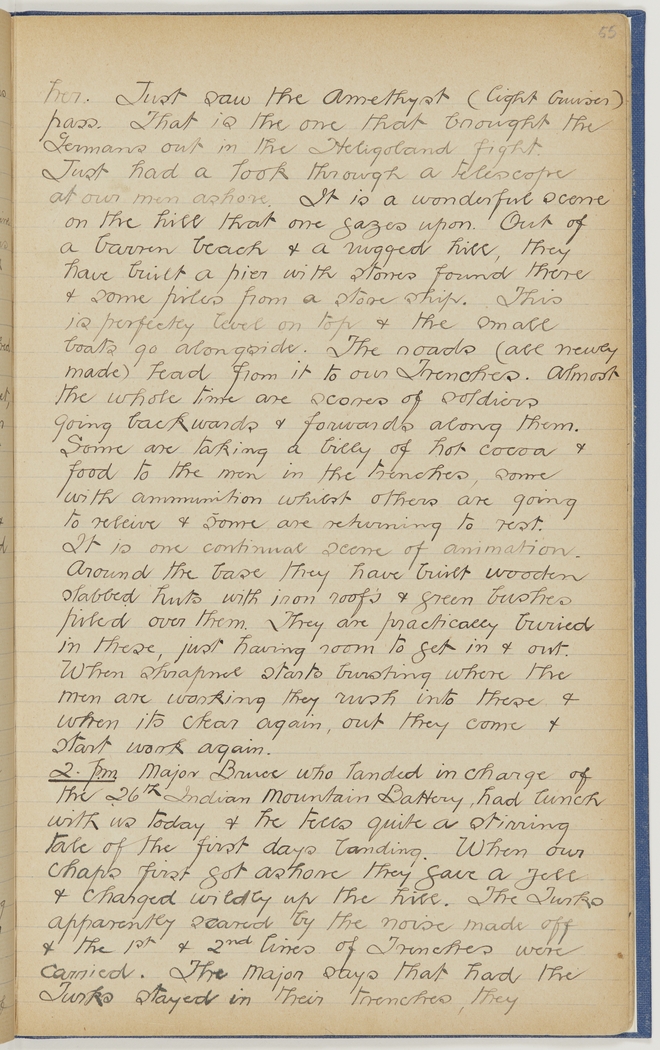 55
her. Just saw the Amethyst (light cruiser)
pass. That is the one that brought the
Germans out in the Heligoland fight.
Just had a look through a telescope
at our men ashore. It is a wonderful scene
on the hill that one gazes upon. Out of
a barren beach & a rugged hill, they
have built a pier with stones found there
& some piles from a store ship. This
is perfectly level on top & the small
boats go alongside. The roads (all newly
made) lead from it to our Trenches. Almost
the whole time are scores of soldiers
going backwards & forwards along them.
Some are taking a billy of hot cocoa &
food to the men in the trenches, some
with ammunition whilst others are going
to releive & some are returning to rest.
It is one continual scene of animation.
Around the base they have built wooden
slabbed huts with iron roofs & green bushes
piled over them. They are practically buried
in these, just having room to get in & out.
When shrapnel starts bursting where the
men are working they rush into these &
when its clear again, out they come &
start work again.
2. pm Major Bruce who landed in charge of
the 26th Indian Mountain Battery, had lunch
with us today & he tells quite a stirring
tale of the first days landing. When our
chaps first got ashore they gave a yell
& charged wildly up the hill. The Turks
apparently scared by the noise made off
& the 1st & 2nd lines of Trenches were
carried. The Major says that had the
Turks stayed in their trenches, they